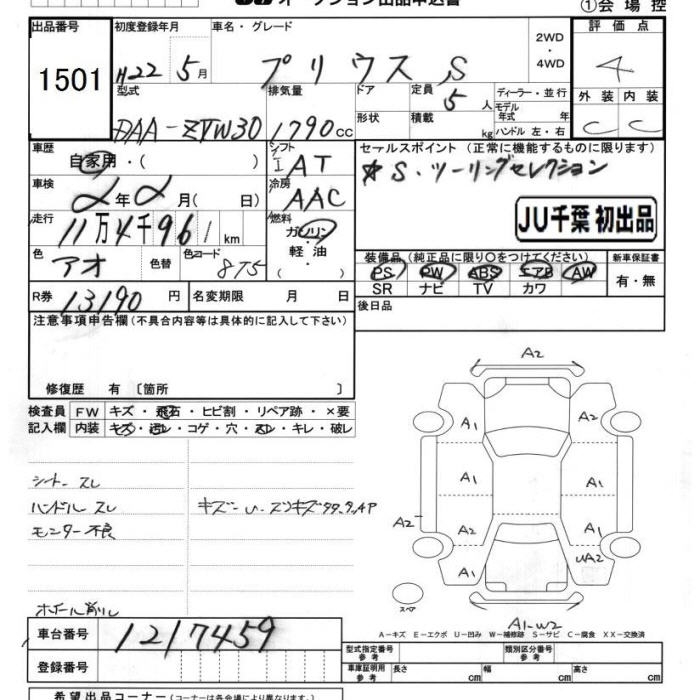 オークション出品申込書
①会場控
出品番号
1501
初度登録年月
H22 5月
車名・グレード
プリウス S
2WD
・
4WD
評価点
4
型式
DAA-ZVW30
排気量
1790cc
ドア
形状
定員
5人
積載
kg
ディーラー・並行
モデル年式 年
ハンドル 左・右
外装
内装
C
C
車歴
自家用・( )
シフト
I AT
車検
2年2月( 日)
冷房
AAC
走行
11万4千961km
燃料
ガソリン
・
軽・油
( )
色
アオ
色替
色コード
8T5
R券
13190円
名変期限 月 日
セールスポイント (正常に機能するものに限ります)
☆S・ツーリングセレクション
JU千葉 初出品
装備品(純正品に限り○をつけてください)
PS PW ABS エアB AW
SR ナビ TV カワ
新車保証書
有・無
後日品
注意事項申告欄(不具合内容等は具体的に記入して下さい)
修復歴 有 〔箇所 〕
検査員
記入欄
FW キズ・飛石・ヒビ割・リペア跡・×要
内装 キズ・汚レ・コゲ・穴・スレ・キレ・破レ
シート スレ
ハンドル スレ
モニター不良
キズ-U・スリキズ
A2
A1
A2
A1
A1
A2
A2
A1
A1
UA2
A1-W2
スペア
A-キズ E-エクボ U-凹み W-補修跡 S-サビ C-腐食 XX-交換済
車台番号
1217459
登録番号
型式指定番号
参考
類別区分番号
参考
車庫証明用
参考
長さ cm
幅 cm
高さ cm
希望出品コーナー(コーナーは各会場により異なります。)